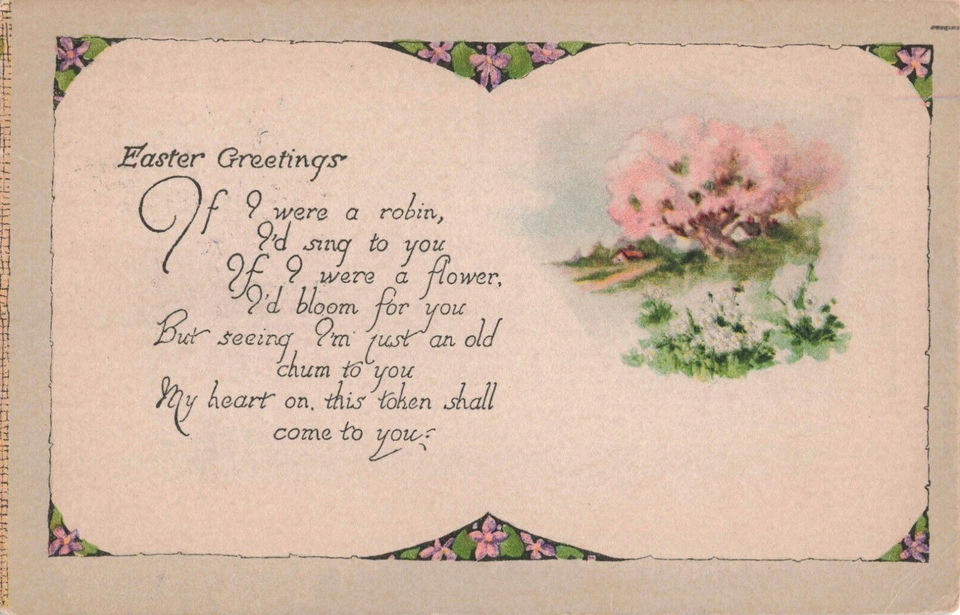 Easter Greetings
If I were a robin,
I'd sing to you
If I were a flower,
I'd bloom for you
But seeing I'm just an old
chum to you
My heart on, this token shall
come to you